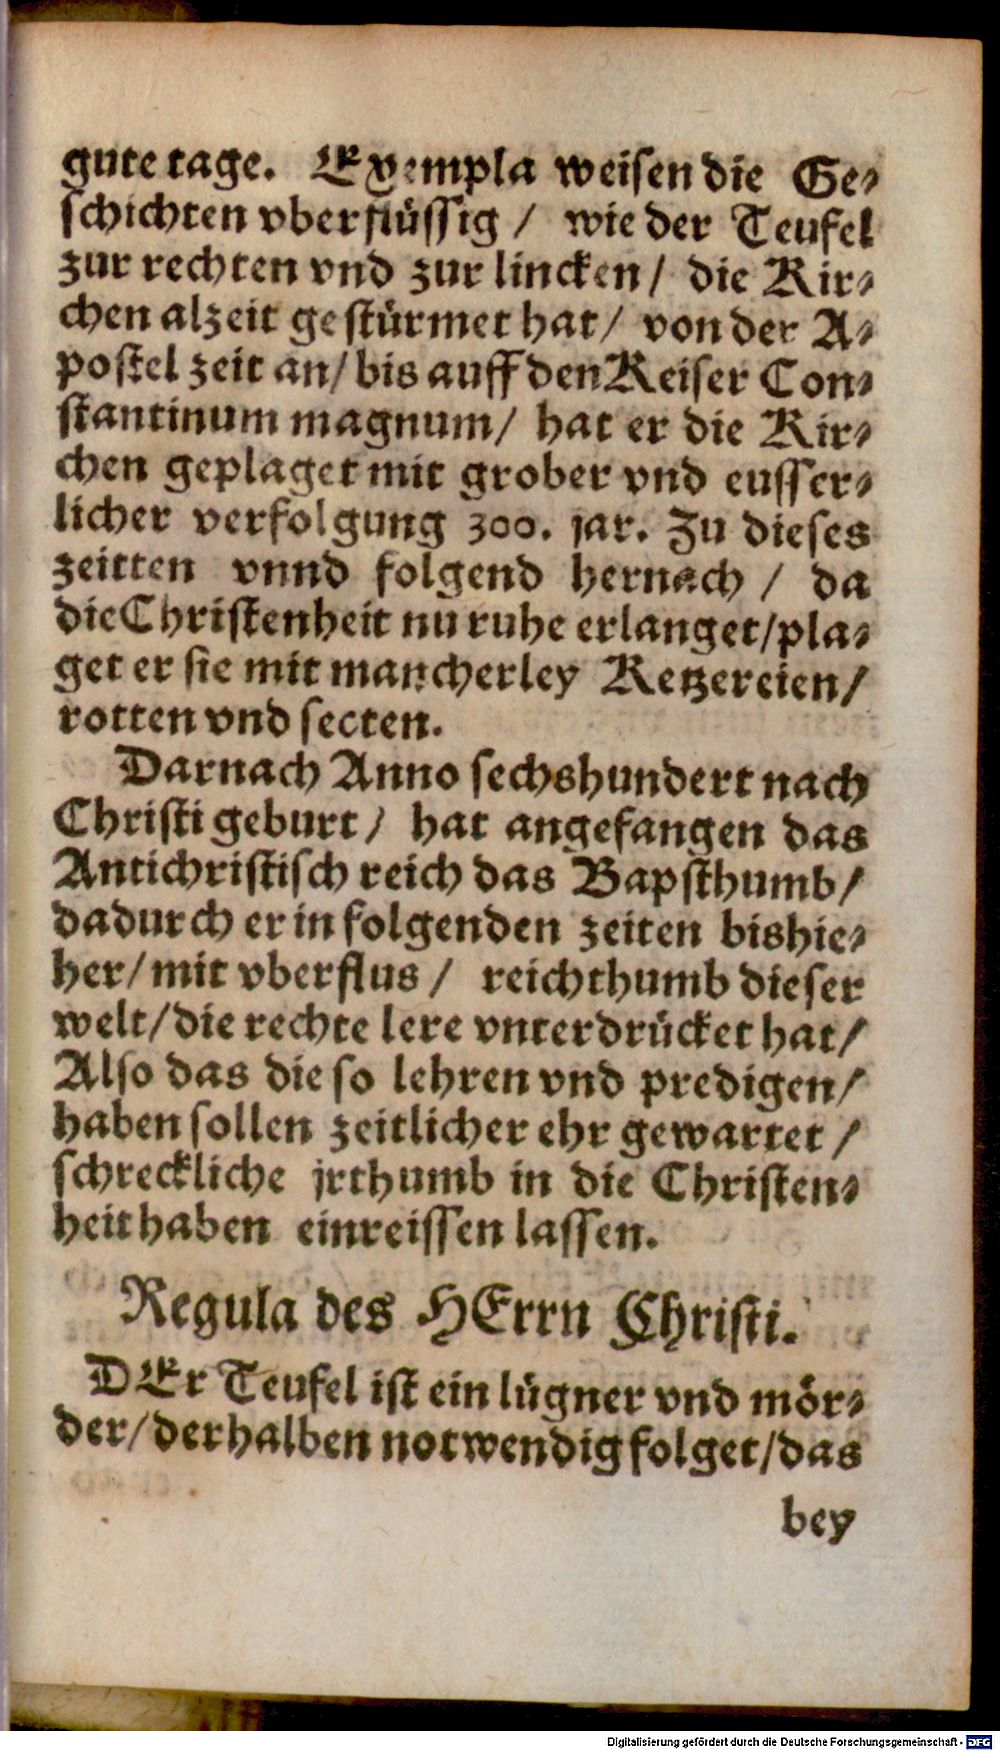 gute tage. Exempla weisen die Ge-
schichten vberflüssig / wie der Teufel
zur rechten vnd zur lincken / die Kir-
chen alzeit gestürmet hat / von der A-
postel zeit an / bis auff den Keiser Con-
stantinum magnum / hat er die Kir-
chen geplaget mit grober vnd eusser-
licher verfolgung 300. jar. Zu dieses
zeitten vnnd folgend hernach / da
die Christenheit nu ruhe erlanget / pla-
get er sie mit mancherley Ketzereien /
rotten vnd secten.
Darnach Anno sechshundert nach
Christi geburt / hat angefangen das
Antichristisch reich das Bapsthumb /
dadurch er in folgenden zeiten bishie-
her / mit vberflus / reichthumb dieser
welt / die rechte lere vnterdrücket hat /
Also das die so lehren vnd predigen /
haben sollen zeitlicher ehr gewartet /
schreckliche jrthumb in die Christen-
heit haben einreissen lassen.
Regula des HErrn Christi.
DEr Teufel ist ein lügner vnd mör-
der / derhalben notwendig folget / das
bey
Digitalisierung gefördert durch die Deutsche Forschungsgemeinschaft - DFG